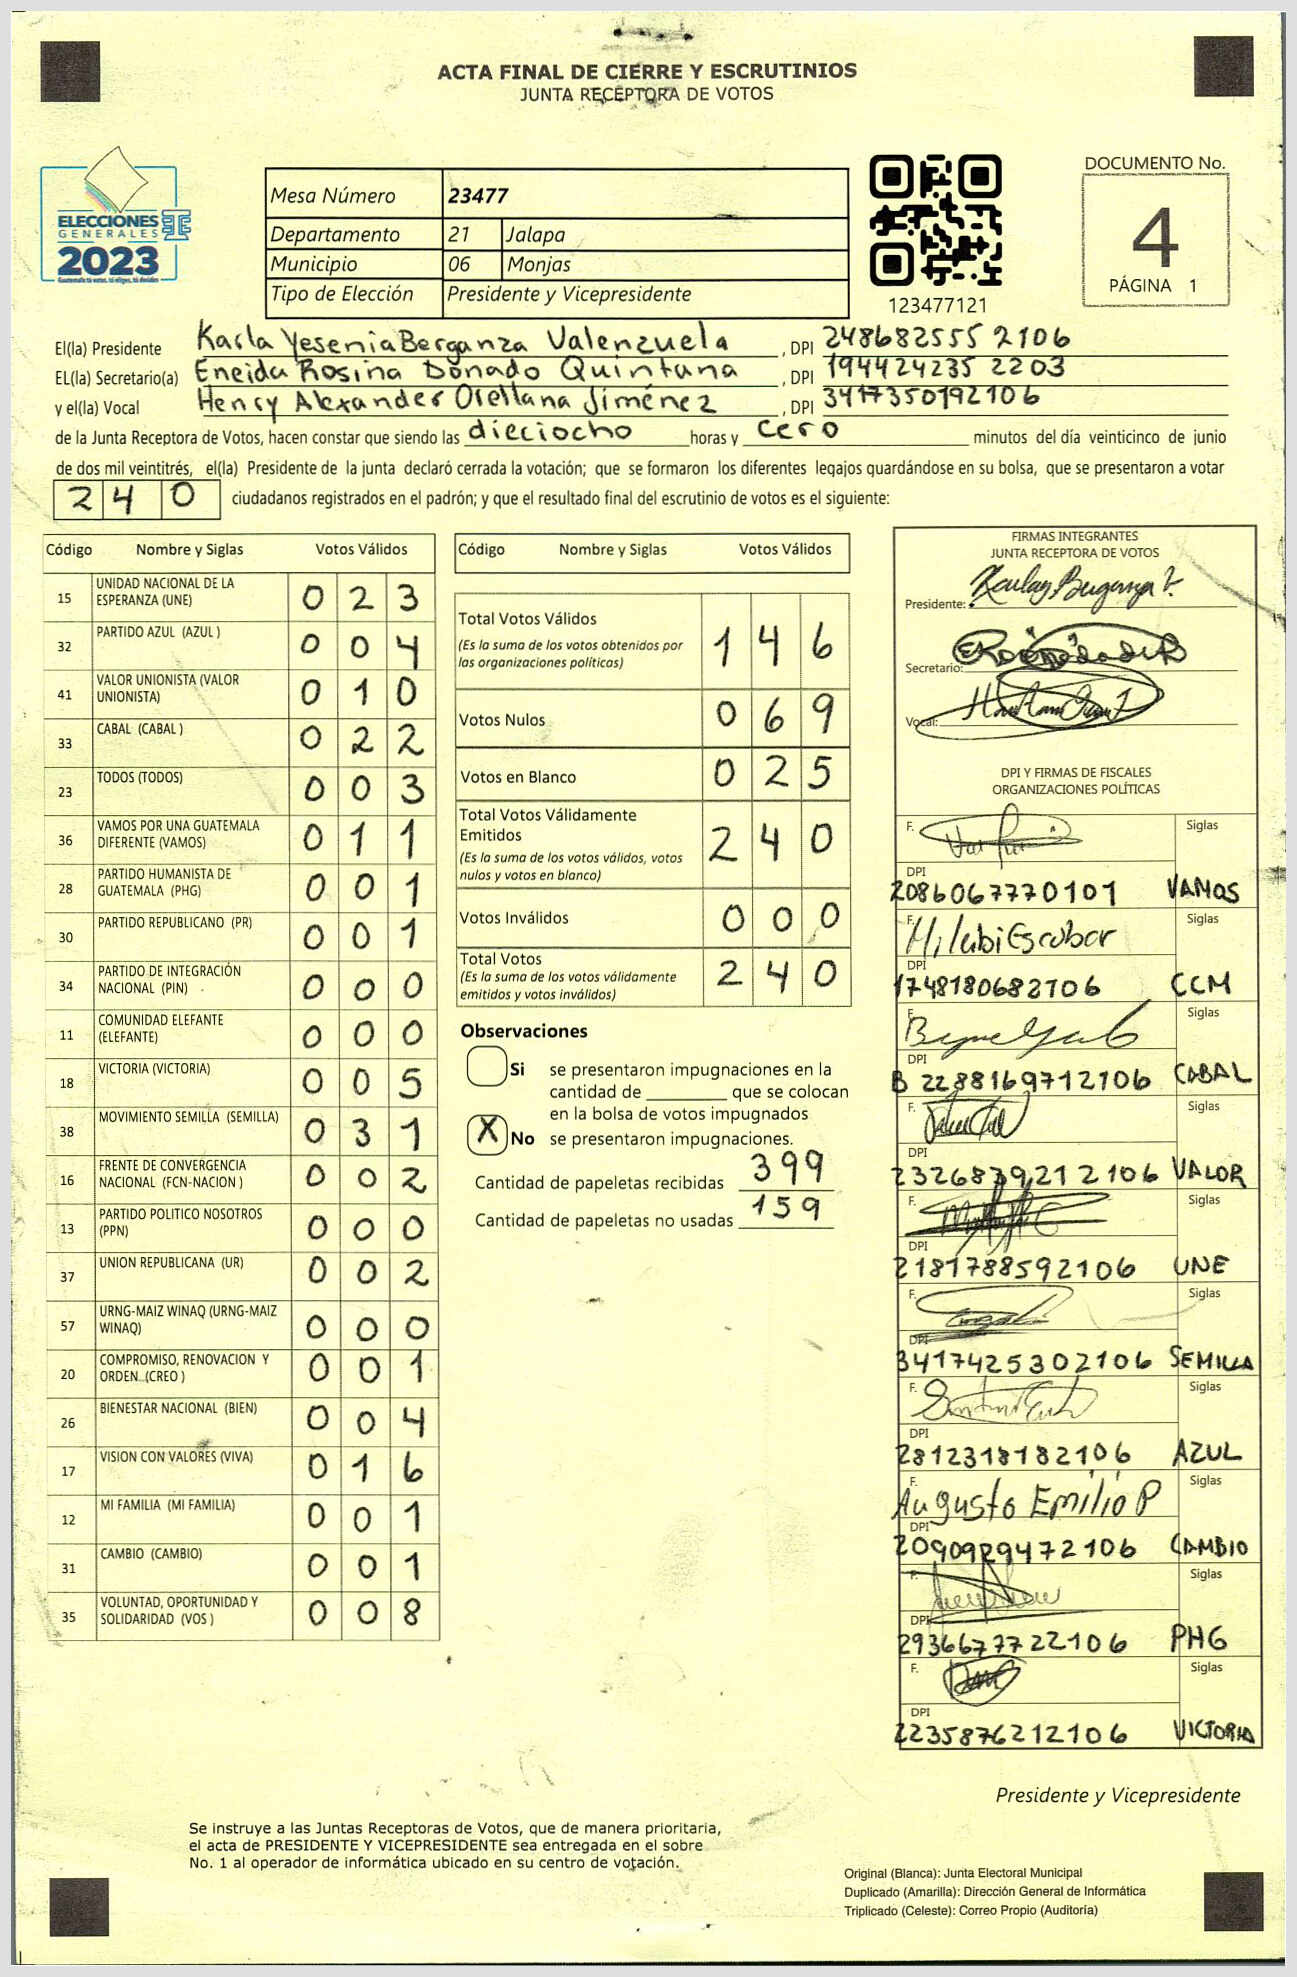 ACTA FINAL DE CIERRE Y ESCRUTINIOS
JUNTA RECEPTORA DE VOTOS
ELECCIONES
GENERALES
2023
Mesa Número 23477
Departamento 21 Jalapa
Municipio 06 Monjas
Tipo de Elección Presidente y Vicepresidente
123477121
DOCUMENTO No.
4
PÁGINA 1
El(la) Presidente Karla Yesenia Berganza Valenzuela , DPI 248682555 2106
EL(la) Secretario(a) Eneida Rosina Donado Quintana , DPI 194424235 2203
y el(la) Vocal Henry Alexander Orellana Jiménez , DPI 3417350192106
de la Junta Receptora de Votos, hacen constar que siendo las dieciocho horas y cero minutos del día veinticinco de junio
de dos mil veintitrés, el(la) Presidente de la junta declaró cerrada la votación; que se formaron los diferentes legajos guardándose en su bolsa, que se presentaron a votar
240 ciudadanos registrados en el padrón; y que el resultado final del escrutinio de votos es el siguiente:
Código Nombre y Siglas Votos Válidos
15 UNIDAD NACIONAL DE LA ESPERANZA (UNE) 023
32 PARTIDO AZUL (AZUL ) 004
41 VALOR UNIONISTA (VALOR UNIONISTA) 010
33 CABAL (CABAL ) 022
23 TODOS (TODOS) 003
36 VAMOS POR UNA GUATEMALA DIFERENTE (VAMOS) 011
28 PARTIDO HUMANISTA DE GUATEMALA (PHG) 001
30 PARTIDO REPUBLICANO (PR) 001
34 PARTIDO DE INTEGRACIÓN NACIONAL (PIN) 000
11 COMUNIDAD ELEFANTE (ELEFANTE) 000
18 VICTORIA (VICTORIA) 005
38 MOVIMIENTO SEMILLA (SEMILLA) 031
16 FRENTE DE CONVERGENCIA NACIONAL (FCN-NACION ) 002
13 PARTIDO POLITICO NOSOTROS (PPN) 000
37 UNION REPUBLICANA (UR) 002
57 URNG-MAIZ WINAQ (URNG-MAIZ WINAQ) 000
20 COMPROMISO, RENOVACION Y ORDEN (CREO ) 001
26 BIENESTAR NACIONAL (BIEN) 004
17 VISION CON VALORES (VIVA) 016
12 MI FAMILIA (MI FAMILIA) 001
31 CAMBIO (CAMBIO) 001
35 VOLUNTAD, OPORTUNIDAD Y SOLIDARIDAD (VOS ) 008
Código Nombre y Siglas Votos Válidos
Total Votos Válidos 146
(Es la suma de los votos obtenidos por
las organizaciones políticas)
Votos Nulos 069
Votos en Blanco 025
Total Votos Válidamente
Emitidos 240
(Es la suma de los votos válidos, votos
nulos y votos en blanco)
Votos Inválidos 000
Total Votos 240
(Es la suma de los votos válidamente
emitidos y votos inválidos)
Observaciones
Si se presentaron impugnaciones en la
cantidad de ________ que se colocan
en la bolsa de votos impugnados
X No se presentaron impugnaciones.
Cantidad de papeletas recibidas 399
Cantidad de papeletas no usadas 159
FIRMAS INTEGRANTES
JUNTA RECEPTORA DE VOTOS
Presidente:
Secretario:
Vocal:
DPI Y FIRMAS DE FISCALES
ORGANIZACIONES POLÍTICAS
F. Siglas
DPI
2086067770101 VAMOS
F. Siglas
DPI
1748180682106 CCM
F. Siglas
DPI
B 2288169712106 CABAL
F. Siglas
DPI
2326839212106 VALOR
F. Siglas
DPI
2181788592106 UNE
F. Siglas
DPI
3417425302106 SEMILLA
F. Siglas
DPI
2812318182106 AZUL
F. Augusto Emilio P Siglas
DPI
2090929472106 CAMBIO
F. Siglas
DPI
2936677722106 PHG
F. Siglas
DPI
2235876212106 VICTORIA
Presidente y Vicepresidente
Se instruye a las Juntas Receptoras de Votos, que de manera prioritaria,
el acta de PRESIDENTE Y VICEPRESIDENTE sea entregada en el sobre
No. 1 al operador de informática ubicado en su centro de votación.
Original (Blanca): Junta Electoral Municipal
Duplicado (Amarilla): Dirección General de Informática
Triplicado (Celeste): Correo Propio (Auditoría)